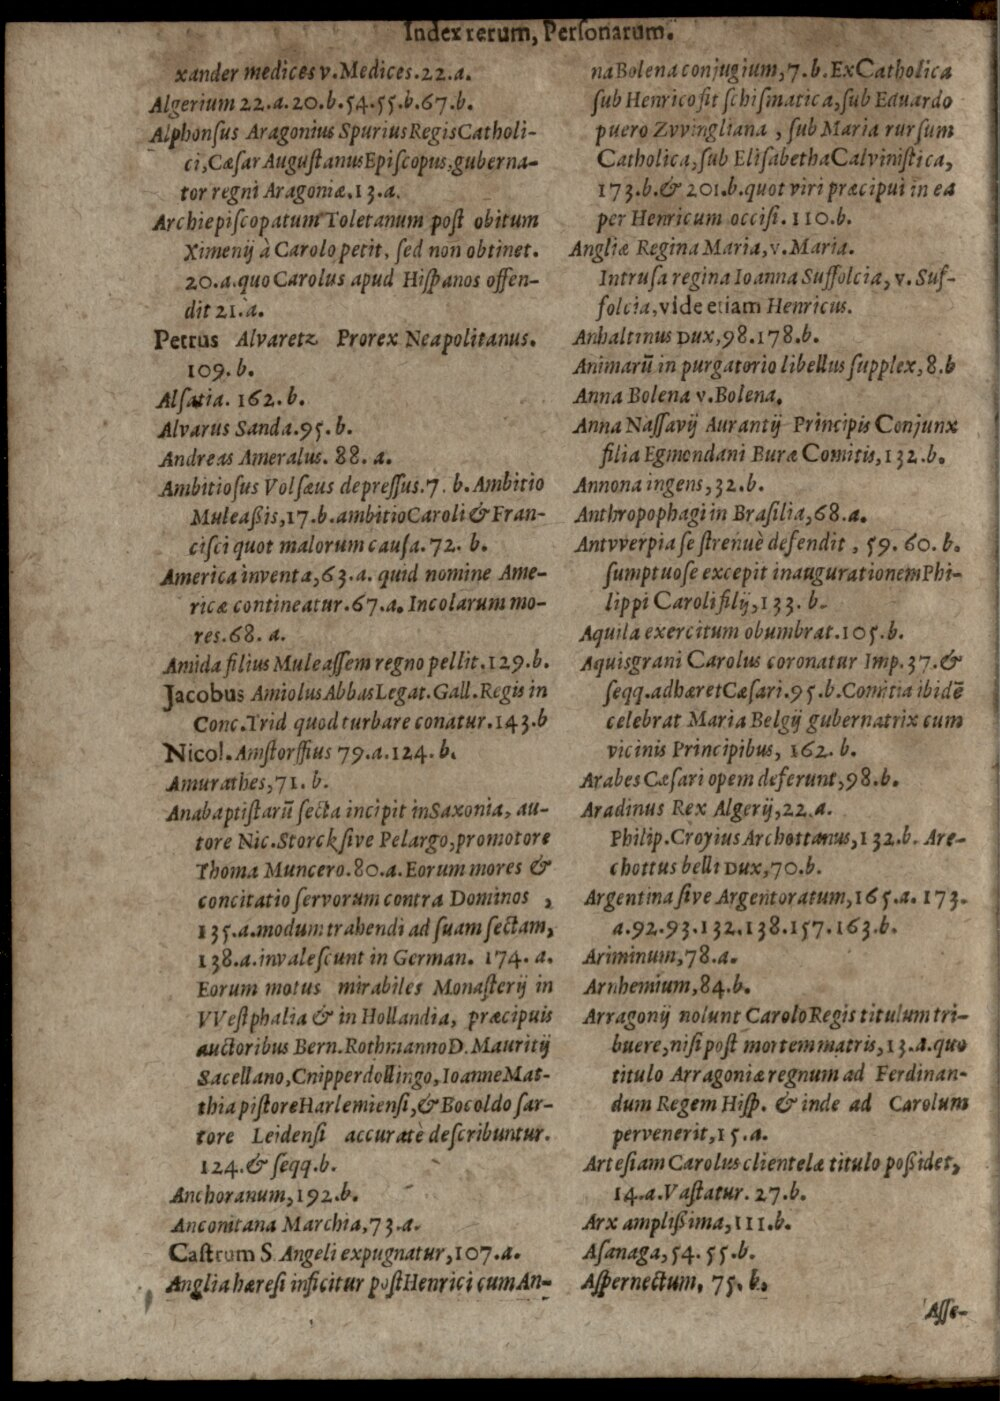 Index rerum, Personarum.
xander medices v. Medices. 22. a.
Algerium 22. a. 20. b. 54. 55. b. 67. b.
Alphonsus Aragonius Spurius Regis Catholi-
ci, Cæsar Augustanus Episcopus, guberna-
tor regni Aragoniæ. 13. a.
Archiepiscopatum Toletanum post obitum
Ximenij à Carolo petit, sed non obtinet.
20. a. quo Carolus apud Hispanos offen-
dit 21. a.
Petrus Alvaretz Prorex Neapolitanus.
109. b.
Alsatia. 162. b.
Alvarus Sanda. 95. b.
Andreas Ameralus. 88. a.
Ambitiosus Volsæus depressus. 7. b. Ambitio
Muleaßis, 17. b. ambitio Caroli & Fran-
cisci quot malorum causa. 72. b.
America inventa, 63. a. quid nomine Ame-
ricæ contineatur. 67. a. Incolarum mo-
res. 68. a.
Amida filius Muleassem regno pellit. 129. b.
Jacobus Amiolus Abbas Legat. Gall. Regis in
Conc. Trid quod turbare conatur. 143. b
Nicol. Amstorffius 79. a. 124. b.
Amurathes, 71. b.
Anabaptistarū secta incipit in Saxonia, au-
tore Nic. Storck sive Pelargo, promotore
Thoma Muncero. 80. a. Eorum mores &
concitatio servorum contra Dominos ,
135. a. modum trahendi ad suam sectam,
138. a. invalescunt in German. 174. a.
Eorum motus mirabiles Monasterij in
VVestphalia & in Hollandia, præcipuis
auctoribus Bern. Rothmanno D. Mauritij
Sacellano, Cnipperdollingo, Ioanne Mat-
thia pistore Harlemiensi, & Bocoldo sar-
tore Leidensi accuratè describuntur.
124. & seqq. b.
Anchoranum, 192. b.
Anconitana Marchia, 73. a.
Castrum S. Angeli expugnatur, 107. a.
Anglia hæresi inficitur post Henrici cum An-
na Bolena conjugium, 7. b. Ex Catholica
sub Henrico fit schismatica, sub Eduardo
puero Zvvingliana , sub Maria rursum
Catholica, sub Elisabetha Calvinistica,
173. b. & 201. b. quot viri præcipui in ea
per Henricum occisi. 110. b.
Angliæ Regina Maria, v. Maria.
Intrusa regina Ioanna Suffolcia, v. Suf-
folcia, vide etiam Henricus.
Anhaltinus Dux, 98. 178. b.
Animarū in purgatorio libellus supplex, 8. b
Anna Bolena v. Bolena.
Anna Nassavij Aurantij Principis Conjunx
filia Egmondani Buræ Comitis, 132. b.
Annona ingens, 32. b.
Anthropophagi in Brasilia, 68. a.
Antvverpia se strenuè defendit , 59. 60. b.
sumptuose excepit inaugurationem Phi-
lippi Caroli filij, 133. b.
Aquila exercitum obumbrat. 105. b.
Aquisgrani Carolus coronatur Imp. 37. &
seqq. adhæret Cæsari. 95. b. Comitia ibidē
celebrat Maria Belgij gubernatrix cum
vicinis Principibus, 162. b.
Arabes Cæsari opem deferunt, 98. b.
Aradinus Rex Algerij, 22. a.
Philip. Croyius Archottanus, 132. b. Are-
chottus belli Dux, 70. b.
Argentina sive Argentoratum, 165. a. 173.
a. 92. 93. 132. 138. 157. 163. b.
Ariminum, 78. a.
Arnhemium, 84. b.
Arragonij nolunt Carolo Regis titulum tri-
buere, nisi post mortem matris, 13. a. quo
titulo Arragoniæ regnum ad Ferdinan-
dum Regem Hisp. & inde ad Carolum
pervenerit, 15. a.
Artesiam Carolus clientelæ titulo poßidet,
14. a. Vastatur. 27. b.
Arx amplißima, 111. b.
Asanaga, 54. 55. b.
Aspernectum. 75. b.
Asse-